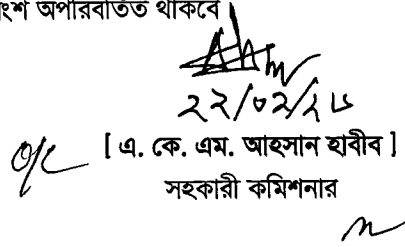 ংশ অপরিবর্তিত থাকবে
২২/০২/১৮
[ এ. কে. এম. আহসান হাবীব ]
সহকারী কমিশনার